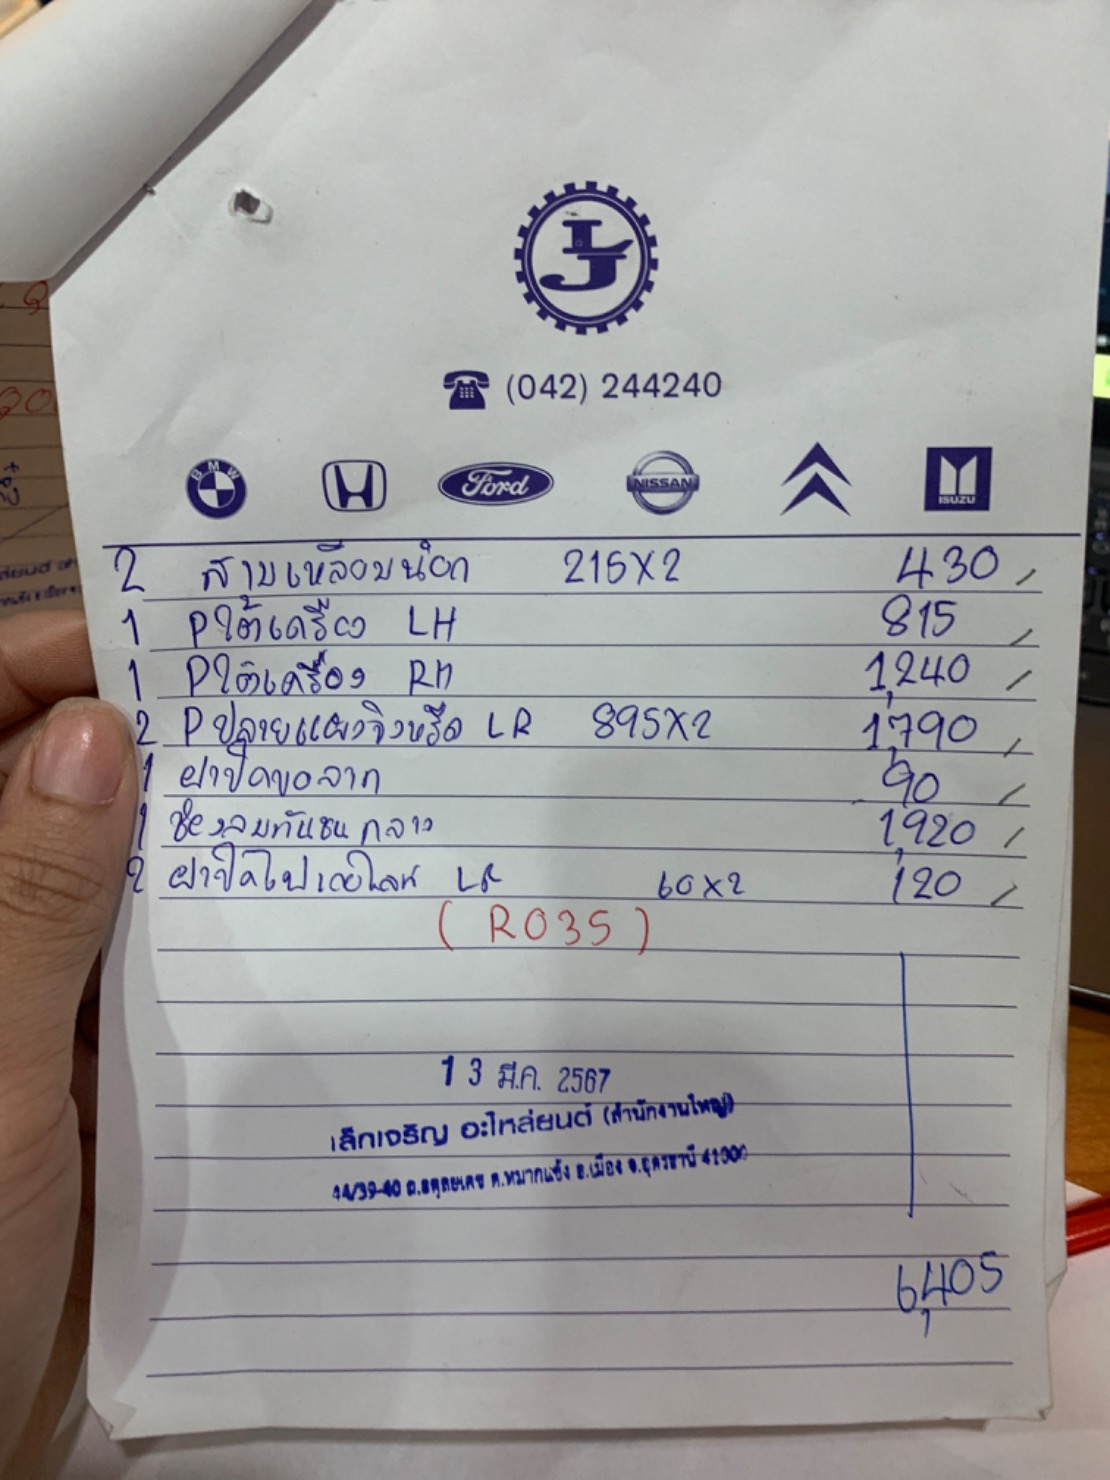 LJ
(042) 244240
BMW
Ford
NISSAN
ISUZU
2 สามเหลี่ยมน๊อก 215X2 430
1 Pใต้เครื่อง LH 815
1 Pใต้เครื่อง RH 1,240
2 Pปลายแผงจิ้งหรีด LR 895X2 1,790
1 ฝาปิดขอลาก 90
1 ช่องลมกันชนกลาง 1,920
2 ฝาปิดไฟเดย์ไลท์ LR 60X2 120
(R035)
13 มี.ค. 2567
เล็กเจริญ อะไหล่ยนต์ (สำนักงานใหญ่)
44/39-40 ถ.อดุลยเดช ต.หมากแข้ง อ.เมือง จ.อุดรธานี 41000
6,405